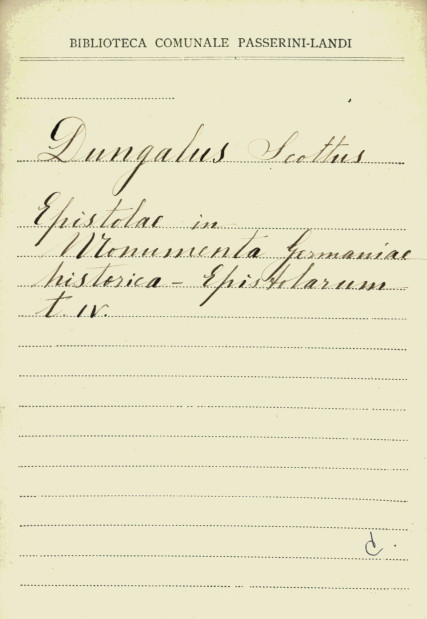 BIBLIOTECA COMUNALE PASSERINI-LANDI
Dungalus Scottus
Epistolae in
Monumenta Germaniae
historica - Epistolarum
t. IV.